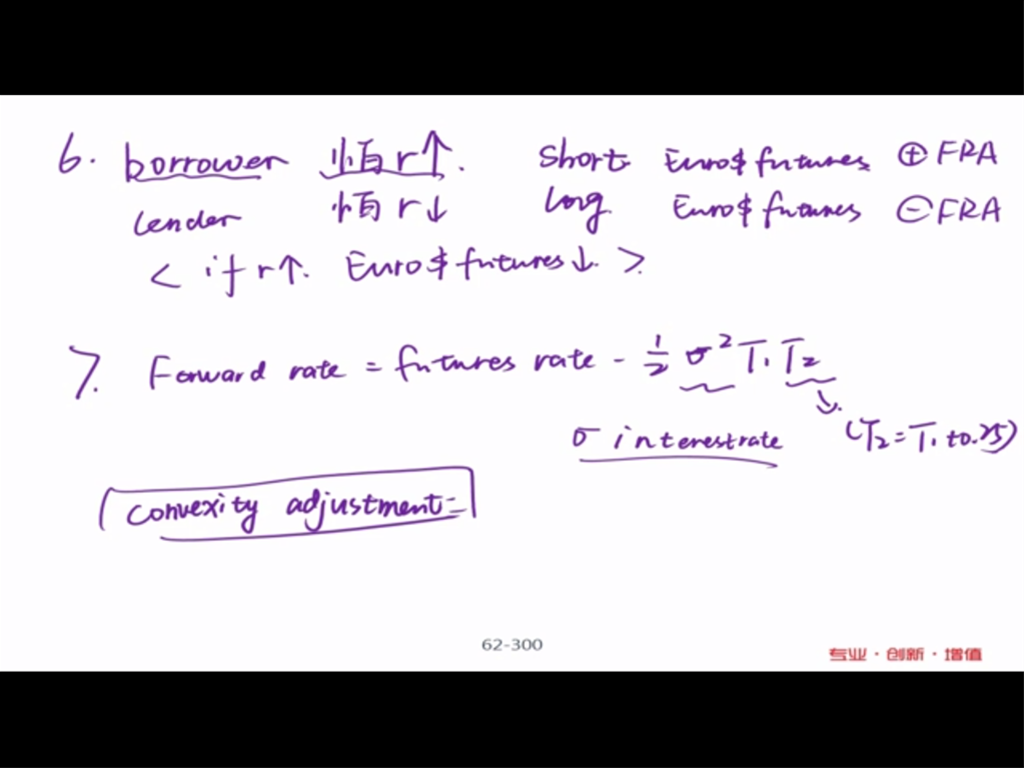 6. borrower 怕 r↑. Short Euro$ futures ⊕ FRA
lender 怕 r↓ long Euro$ futures ⊖ FRA
< if r↑. Euro$ futures ↓. >
7. Forward rate = futures rate - ½ σ² T₁ T₂
σ interestrate (T₂ = T₁ +0.25)
convexity adjustment=
62-300
专业·创新·增值